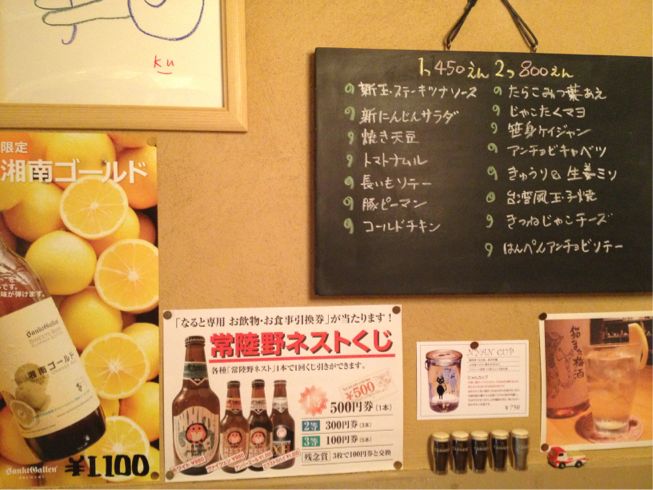 ku
1つ450えん 2つ800えん
新玉・ステーキツナソース
新にんじんサラダ
焼き天豆
トマトナムル
長いもソテー
豚ピーマン
コールドチキン
たらこみつ葉あえ
じゃこたくマヨ
笹身ケイジャン
アンチョビキャベツ
きゅうり 生姜ミソ
台湾風玉子焼
きつねじゃこチーズ
はんぺんアンチョビソテー
限定
湘南ゴールド
味が弾けます。
SanktGallen
湘南ゴールド
SanktGallen
BREWERY
¥1,100
「なると専用 お飲物・お食事引換券」が当たります!
常陸野ネストくじ
各種「常陸野ネスト」1本で1回くじ引きができます。
¥500
500円券(1本)
2等 300円券
3等 100円券
残念賞 3枚で100円券と交換
NYAN CUP
¥750
梅酒